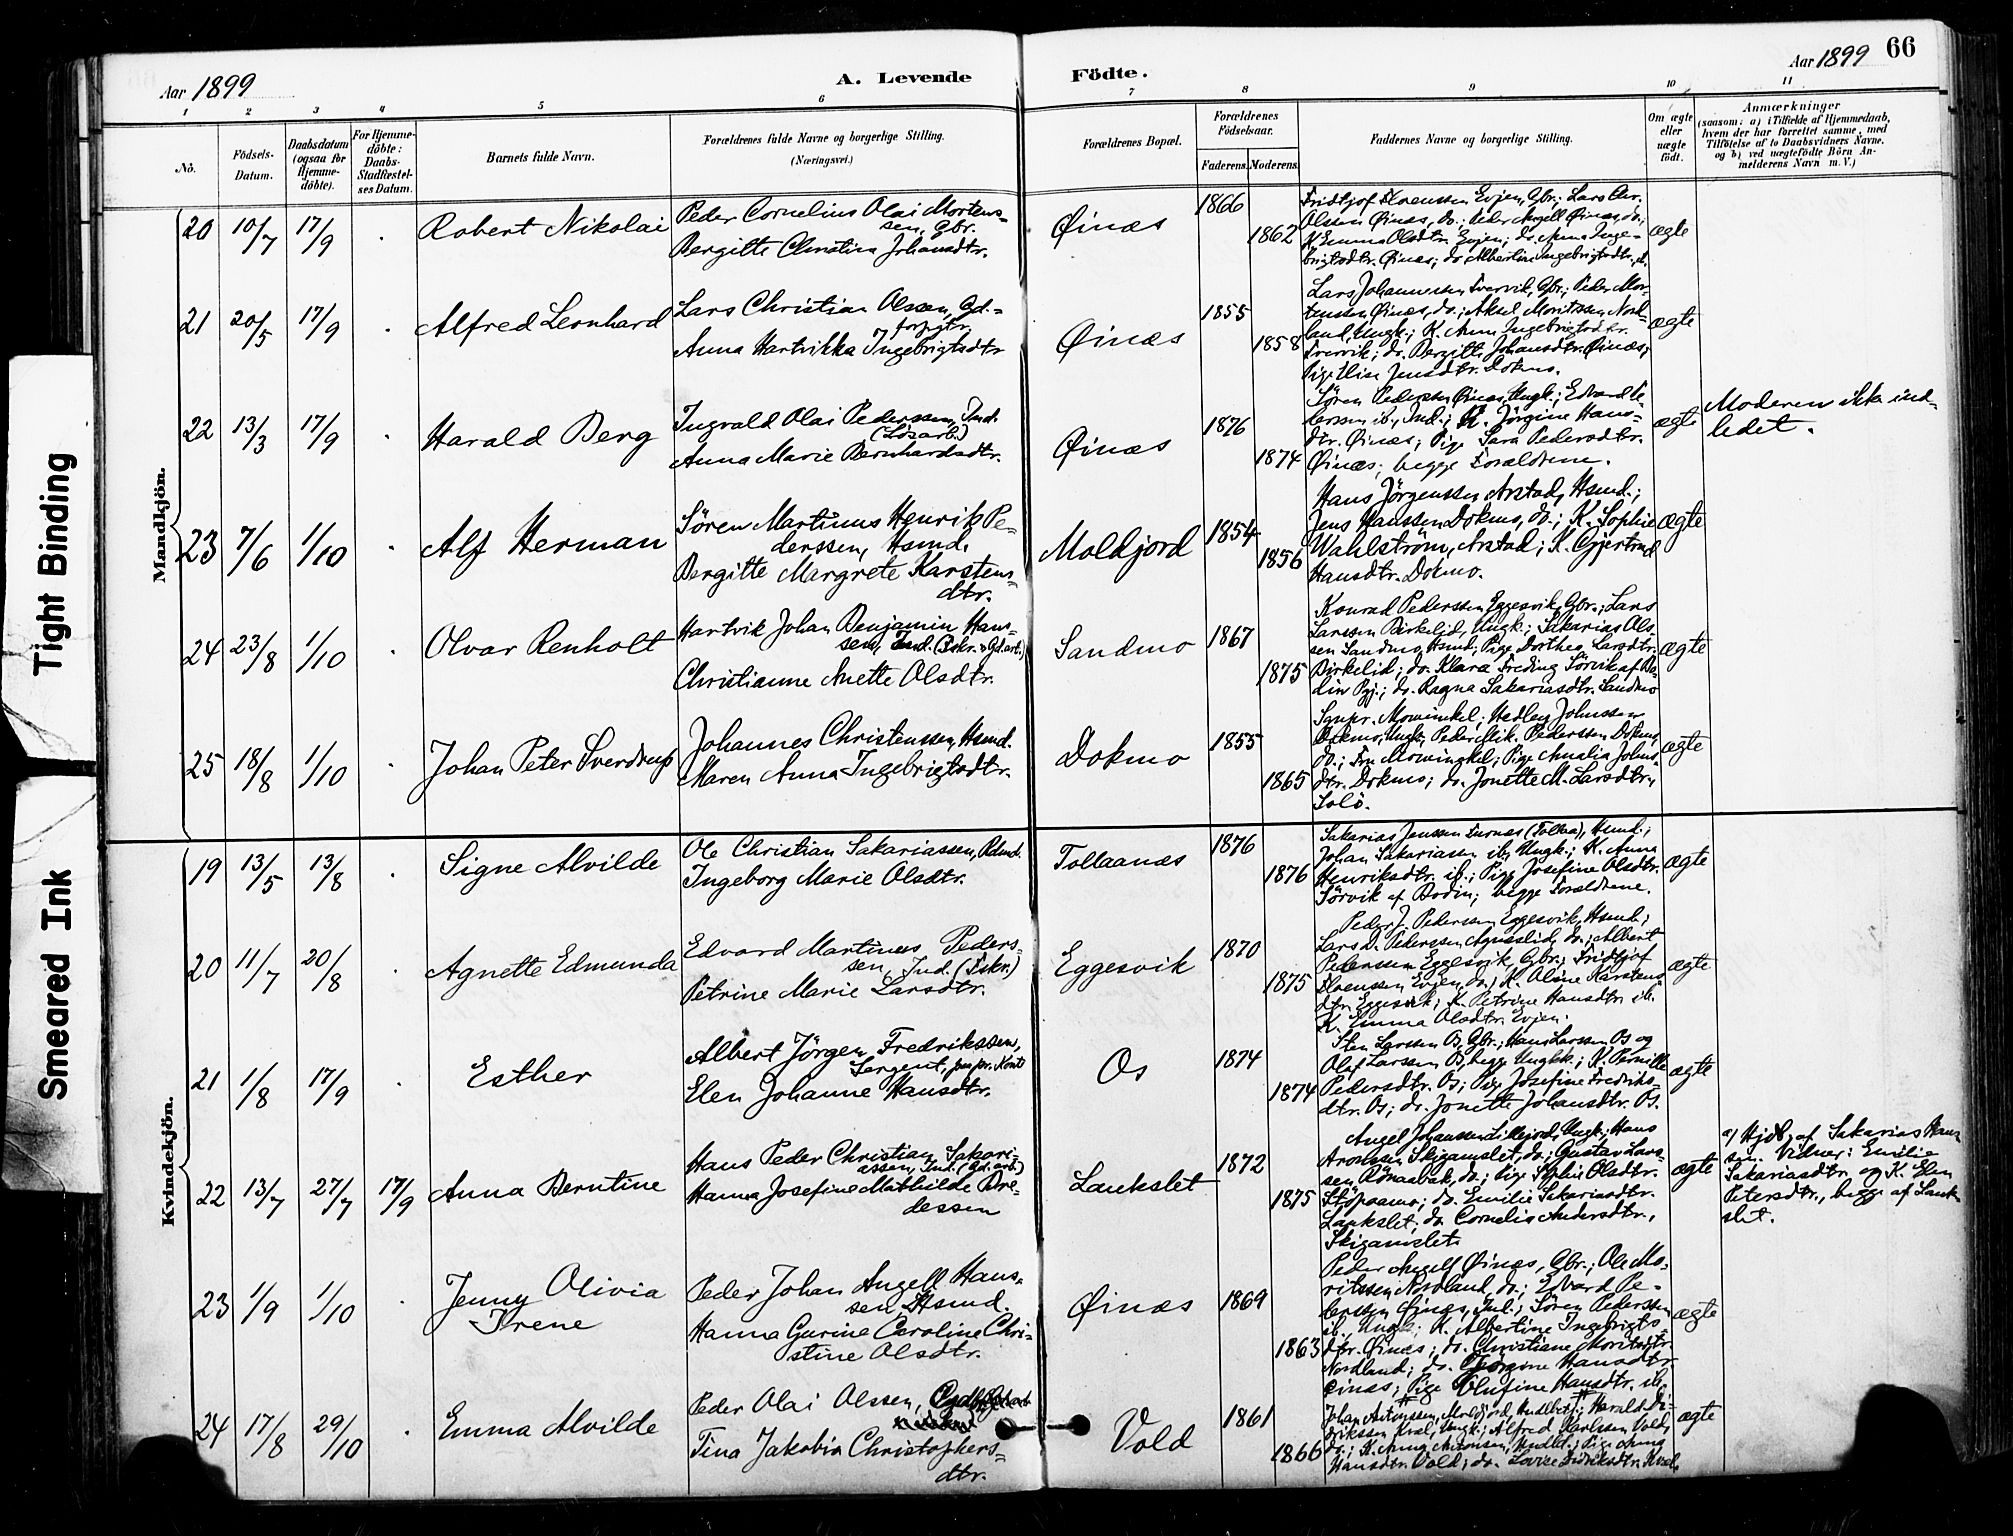 Aar 1899
A. Levende Födte.
Aar 1899 66
Tight Binding
Smeared Ink
1 2 3 4 5 6 7 8 9 10 11
No.
Födsels-Datum.
Daabsdatum (ogsaa for Hjemme-döbte).
For Hjemme-döbte: Daabs-Stadfæstel-ses Datum.
Barnets fulde Navn.
Forældrenes fulde Navne og borgerlige Stilling. (Næringsvei.)
Forældrenes Bopæl.
Forældrenes Födselsaar.
Faderens. Moderens.
Faddernes Navne og borgerlige Stilling.
Om ægte eller uægte födt.
Anmærkninger
(saasom: a) i Tilfælde af Hjemmedaab,
hvem der har forrettet samme, med
Tilföielse af to Daabsvidners Navne.
og b) ved uægtefödte Börn An-
melderens Navn m. V.)
Mandkjön.
20 10/7 17/9 Robert Nikolai
Peder Cornelius Olai Mortens-
sen, Gbr.
Bergitte Christina Johansdtr.
Øinæs 1866 1862
Fridtjof Evenssen Evjen, Gbr.; Lars Chr.
Olssen Øinæs, do.; Peder Angell Øinæs, do.;
K. Emma Olsdtr. Evjen; do. Anna Inge-
brigtsdtr. Øinæs; do. Albertine Ingebrigtsdtr. ib.
ægte
21 20/5 17/9 Alfred Leonhard
Lars Christian Olssen, Gd.-
forpgtr.
Anna Hartvikka Ingebrigtsdtr
Øinæs 1855 1858
Lars Johannessen Tvervik, Gbr.; Peder Mor-
tenssen Øinæs, do.; Aksel Moritssen Nord-
land, Ungk.; K. Anna Ingebrigtsdtr.
Tvervik; do. Bergitte Johansdtr. Øinæs;
Pige Elise Jensdtr. Dokmo.
ægte
22 13/3 17/9 Harald Berg
Ingvald Olai Pederssen, Ind.
(Lösarb.)
Anna Marie Bernhardsdtr.
Øinæs 1876 1874
Søren Pederssen Øinæs, Ungk.; Edvard Pe-
derssen ib., Ind.; K. Jörgine Hans-
dtr. Øinæs; Pige Sara Pedersdtr.
Øinæs; begge Forældrene.
ægte
Moderen ikke ind-
ledet.
23 7/6 1/10 Alf Herman
Søren Martinus Henrik Pe-
derssen, Hsmd.
Bergitte Margrete Karstens-
dtr.
Moldjord 1854 1856
Hans Jörgenssen Arstad, Hsmd.;
Jens Hanssen Dokmo, do.; K. Sophie
Wahlström, Arstad; K. Gjertrud
Hansdtr. Dokmo.
ægte
24 23/8 1/10 Olvar Renholt
Hartvik Johan Benjamin Hans-
sen, Ind. (Fskr. o Gd.arb.)
Christianne Anette Olsdtr.
Sandmo 1867 1875
Konrad Pederssen Eggesvik, Gbr.; Lars
Larssen Birkelid, Ungk.; Sakarias Ols-
sen Sandmo, Hsmd; Pige Dorthea Larsdtr.
Birkelid; do. Klara Freding Sörvik af Bo-
din Pgj.; do. Ragna Sakariasdtr. Sandmo
ægte
25 18/8 1/10 Johan Peter Sverdrup
Johannes Christenssen, Hsmd.
Maren Anna Ingebrigtsdtr.
Dokmo 1855 1865
Sgnpr. Mowinckel; Hedley Johnssen
Dokmo, Ungk.; Peder Mik. Pederssen Dokmo,
do.; Fru Mowinckel; Pige Amalia Johns-
dtr. Dokmo; do. Jonette M. Larsdtr.,
Solö.
ægte
Kvindekjön.
19 13/5 13/8 Signe Alvilde
Ole Christian Sakariassen, Rdmd.
Ingeborg Marie Olsdtr.
Tollaanæs 1876 1876
Sakarias Jenssen Furnæs (Tollaa), Hsmd.;
Johan Sakariassen ib., Ungk.; K. Anna
Henriksdtr. ib.; Pige Josefine Olsdtr.
Sörvik af Bodin; begge Forældrene.
ægte
20 11/7 20/8 Agnette Edmunda
Edvard Martinus Peders-
sen, Ind. (Fskr.)
Petrine Marie Larsdtr.
Eggesvik 1870 1875
Peder J. Pederssen Eggesvik, Hsmd.;
Lars D. Pederssen Agneslid, do.; Albert
Pederssen Eggesvik, Gbr.; Fridtjof
Evenssen Evjen, do.; K. Oline Karstens-
dtr. Eggesvik; K. Petrine Hansdtr. ib.
K. Emma Olsdtr. Evjen.
ægte
21 1/8 17/9 Esther
Albert Jörgen Fredrikssen,
Sergent,
Elen Johanne Hansdtr.
Os 1874 1874
Sten Larssen Os, Gbr.; Hans Larssen Os og
Olaf Larssen Os, begge Ungkk.; K. Pernille
Pedersdtr. Os; Pige Josefine Fredriks-
dtr. Os; do. Jonette Johansdtr. Os.
ægte
22 13/7 27/7 17/9 Anna Berntine
Hans Peder Christian Sakari-
assen, Ind. (Gd.arb.)
Hanna Josefine Mathilde Bre-
dessen
Laukslet 1872 1875
Angel Johanssen Lillejord, Ungk.; Hans
Aronssen Skigamslet, do.; Gustav Lars-
sen Rönaabak, do.; Pige Sophie Olsdtr.
Støpaamo; do. Emilie Sakariasdtr.
Laukslet; do. Cornelia Andersdtr.,
Skigamslet.
ægte
a) Hjdb. af Sakarias Hans-
sen. Vidner: Emilie
Sakariasdtr. og K. Elen
Petersdtr., begge af Lauk-
slet.
23 1/9 1/10 Jenny Olivia
Irene
Peder Johan Angell Hans-
sen, Hsmd.
Hanna Gurine Caroline Chri-
stine Olsdtr.
Øinæs 1869 1863
Peder Angell Øinæs, Gbr.; Ole Mo-
ritssen Nordland, do.; Edvard Pe-
derssen Øinæs, Ind.; Søren Pederssen
ib., Ungk.; K. Albertine Ingebrigts-
dtr. Øinæs; do. Christiane Moritsdtr.
Nordland; do. Jörgine Hansdtr.
Øinæs; Pige Olufine Hansdtr. ib.
ægte
24 17/8 29/10 Emma Alvilde
Peder Olai Olssen,
Tina Jakobia Christophers-
dtr.
Vold 1861 1866
Johan Antonssen, Moldjord, Handlbetj.; Harald Di-
drikssen Kvæl, Ungk.; Alfred Karlssen Vold,
do.; K. Anna Antonsen, Handld.; Pige Anna
Hansdtr. Vold; do. Lovise Didriksdtr. Kvæl.
ægte